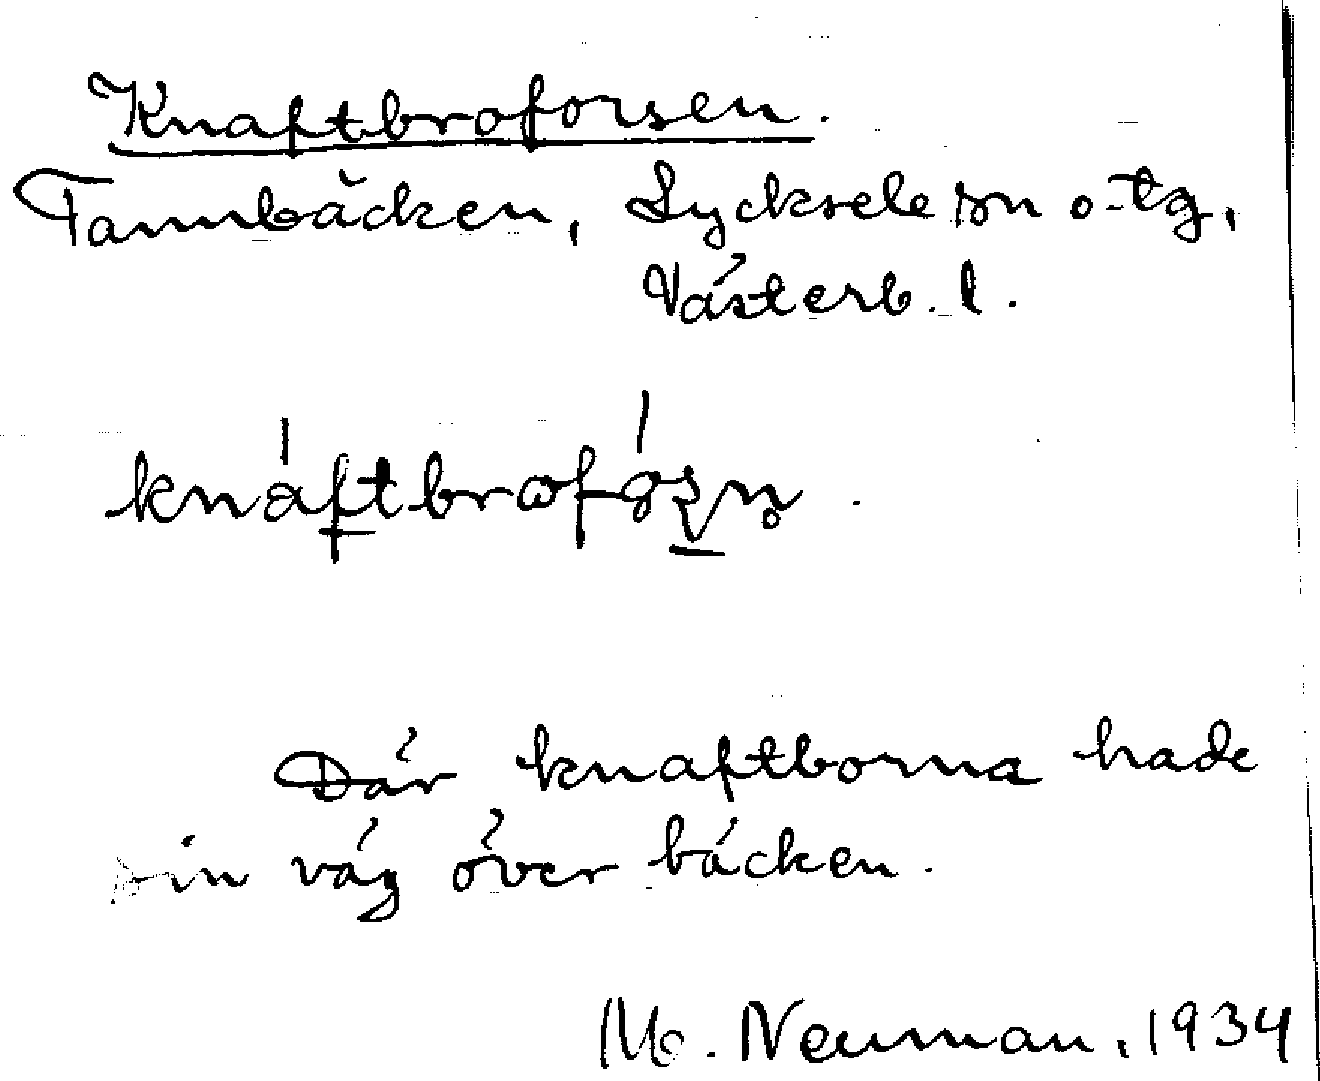 Knaftbroforsen.
Tannbäcken, Lycksele sn o. tg,
Västerb. l.
knaftbrofósn.
Där knaftborna hade
sin väg över bäcken.
M. Neuman, 1934